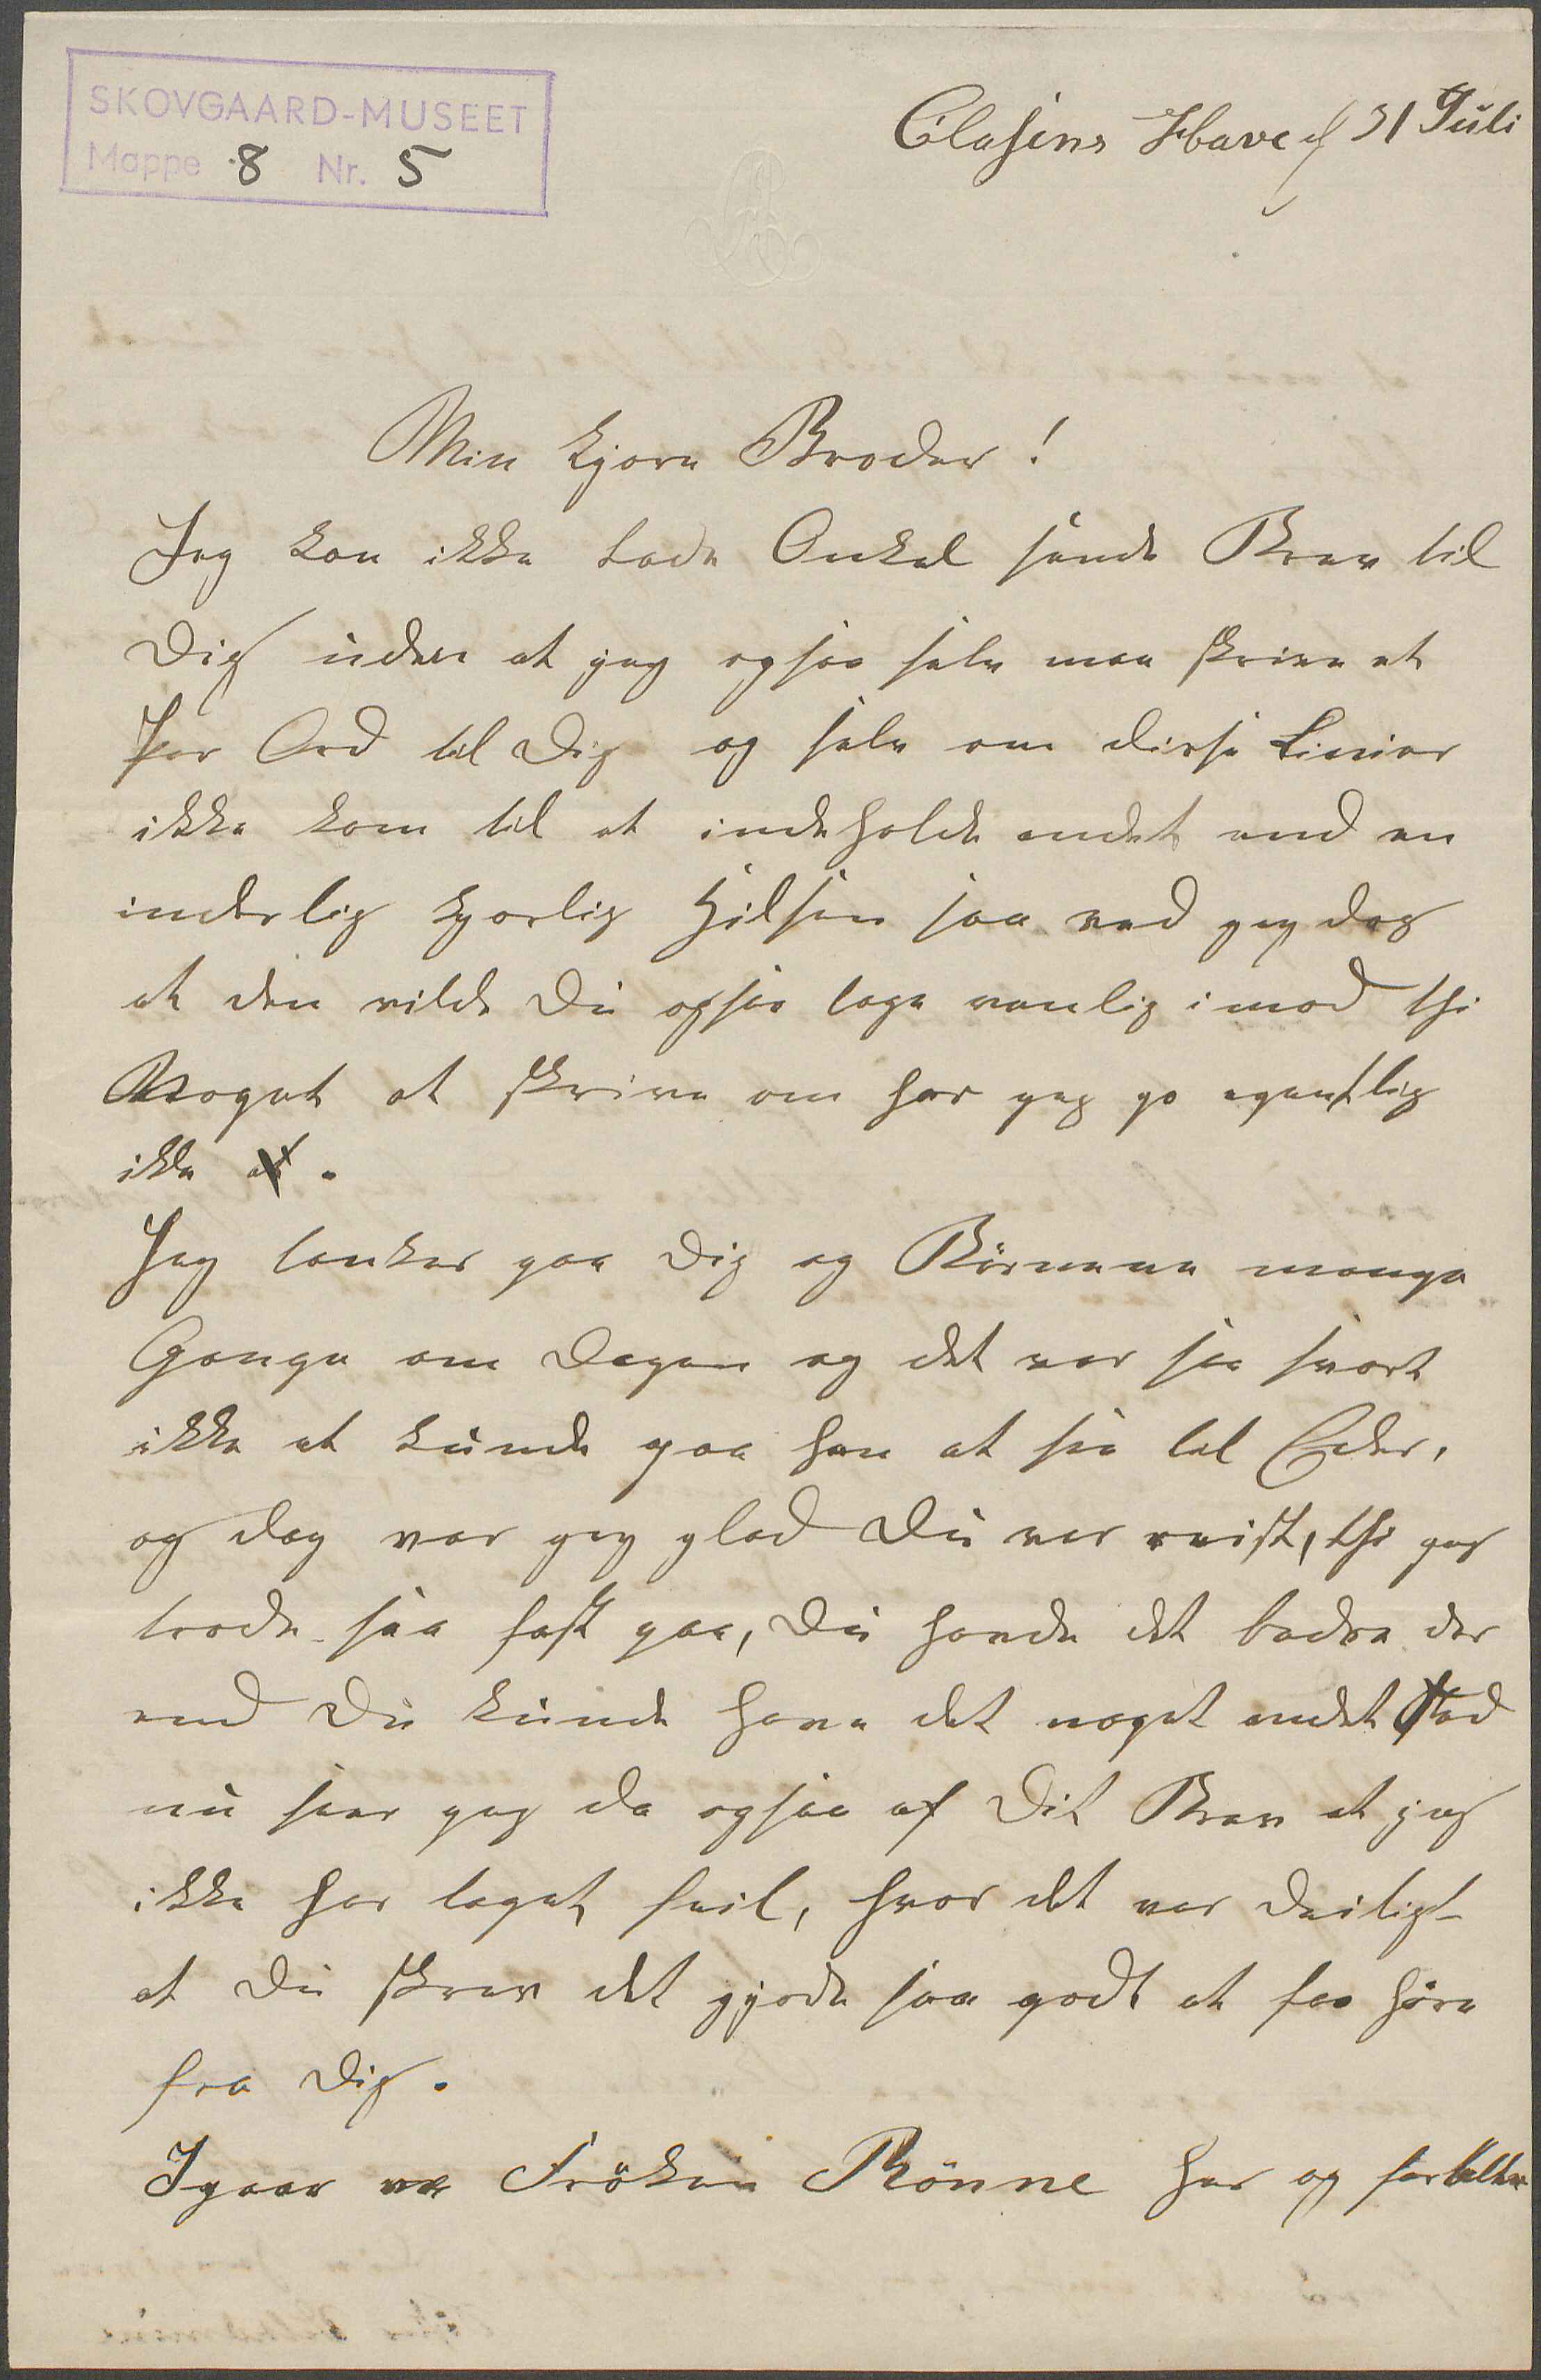 SKOVGAARD-MUSEET
Mappe 8 Nr. 5
Clasens Have d 31 Juli
Min kjære Broder!
Jeg kan ikke lade Onkel sende Brev til
Dig uden at jeg ogsaa selv maa skrive et
Par Ord til Dig og selv om disse Linier
ikke kom til at indeholde andet end en
inderlig kjærlig Hilsen saa ved jeg dog
at den vilde Du ogsaa tage venlig imod thi
Noget at skrive om har jeg jo egentlig
ikke
Jeg tænker paa Dig og Börnene mange
Gange om Dagen og det var saa svært
ikke at kunde gaa hen at see til Eder,
og dog var jeg glad Du var reist, thi jeg
troede saa fast paa, Du havde det bedre der
end Du kunde have det noget andet Sted
nu seer jeg da ogsaa af Dit Brev at jeg
ikke har taget feil, hvor det var deiligt
at Du skrev det gjorde saa godt at faa höre
fra Dig.
Igaar var Fröken Rönne her og fortalte